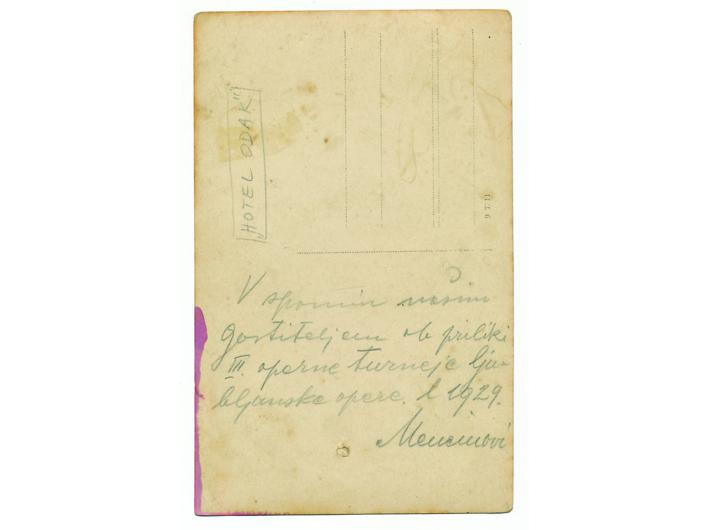 „HOTEL ODAK"
9 7.11
V spomin našim
gostiteljem ob priliki
III. operne turneje lju-
bljanske opere. l 1929.